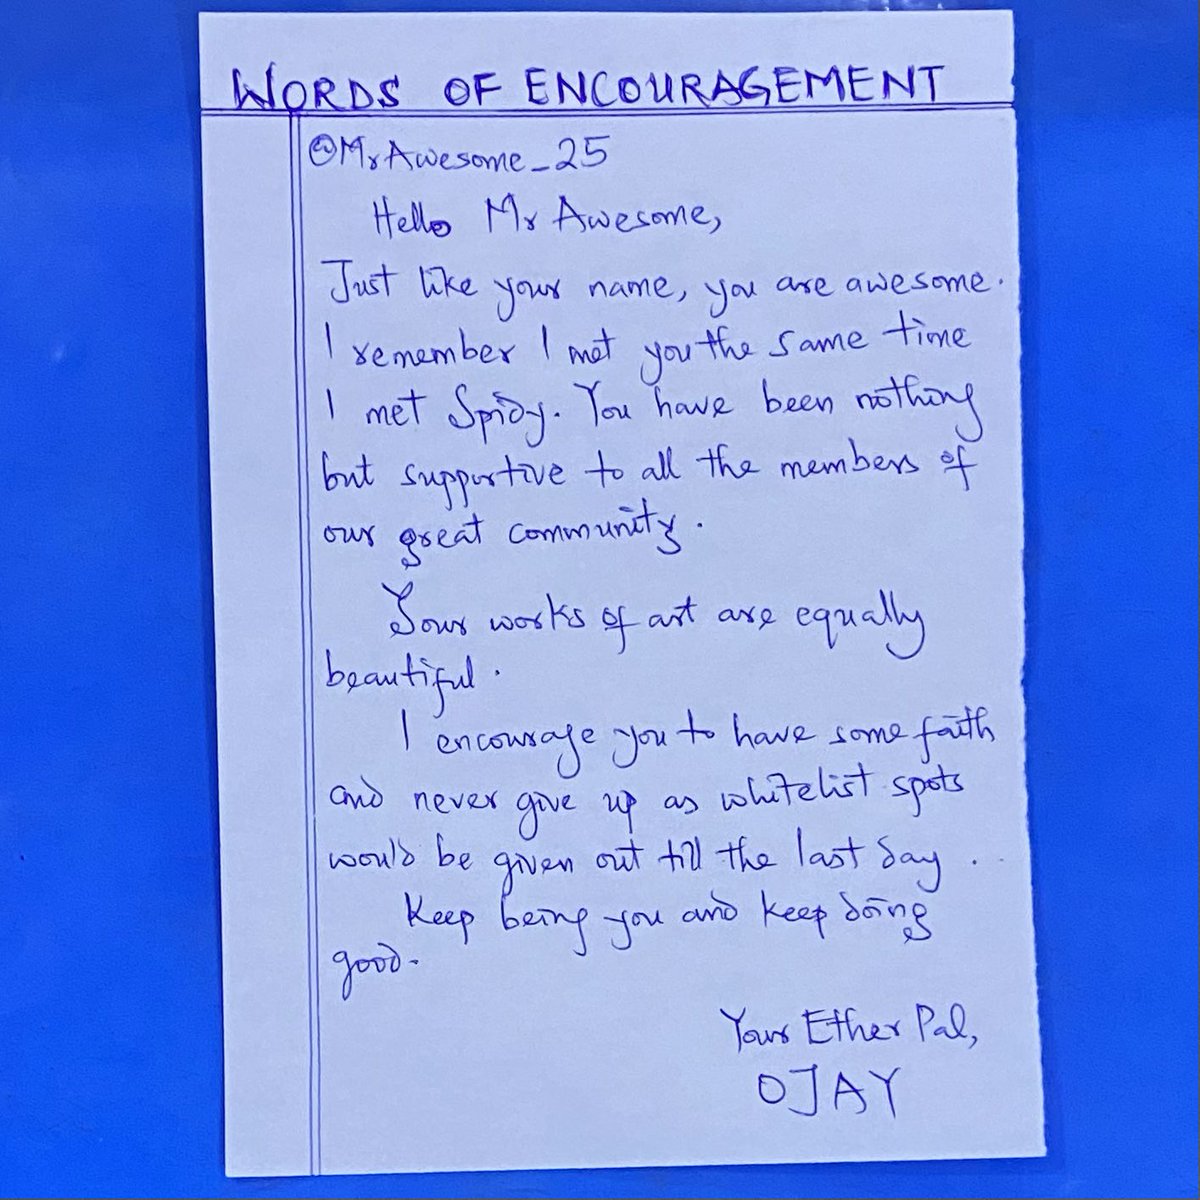 WORDS OF ENCOURAGEMENT
@MrAwesome_25
Hello Mr Awesome,
Just like your name, you are awesome.
I remember I met you the same time
I met Spidy. You have been nothing
but supportive to all the members of
our great community.
Your works of art are equally
beautiful.
I encourage you to have some faith
and never give up as whitelist spots
would be given out till the last day ..
Keep being you and keep doing
good.
Your Ether Pal,
OJAY